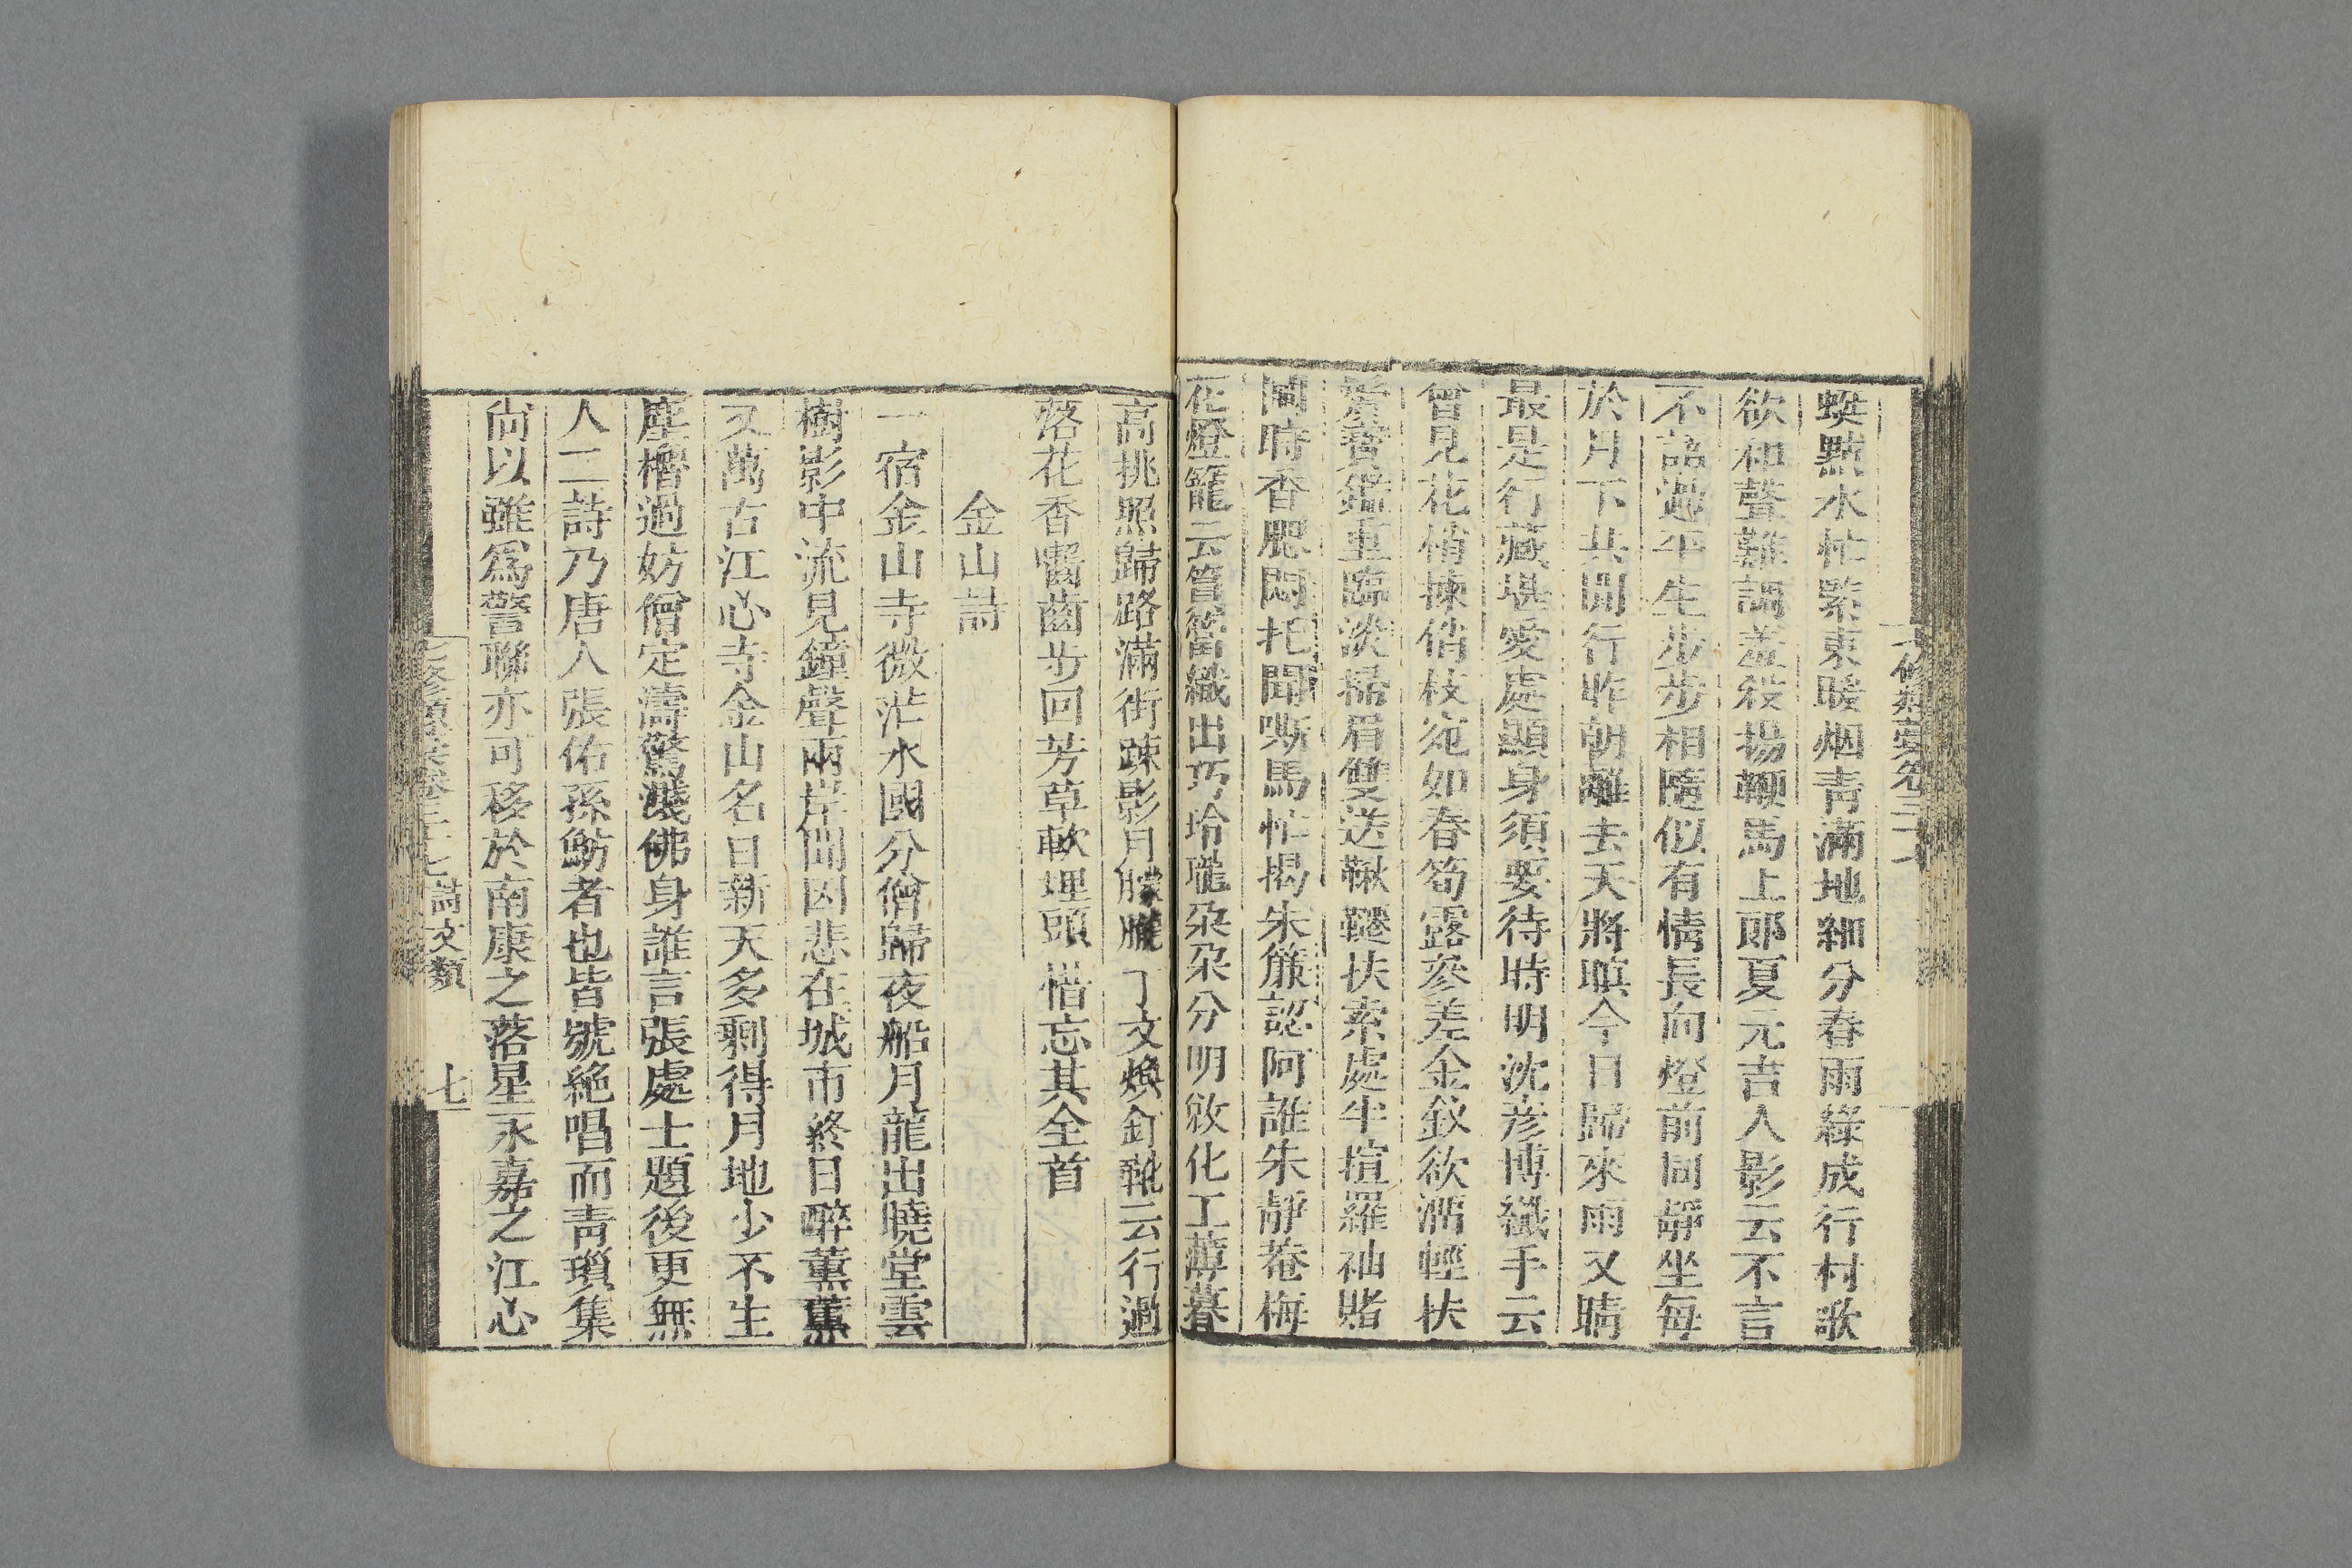 蜞點水忙縈東暖烟青滿地細分春雨綠成行村歌
欲和聲難調羞殺揚鞭馬上郎夏元吉人影云不言
不語過平生步步相隨似有情長向燈前同靜坐每
於月下共閒行昨朝離去天將暝今日歸來雨又晴
最是行藏堪愛處顯身須要待時明沈彥博纖手云
曾見花梢揀俏枝宛如春筍露參差金釵欲溜輕扶
鬢寶鑑重臨淡掃眉雙送鞦韆扶索處半揎羅袖賭
鬮時香腮悶托聞嘶馬忙揭朱簾認阿誰朱靜菴梅
花燈籠云簹篛織出巧玲瓏朶朶分明敓化工薄暮
高挑照歸路滿街疎影月朦朧丁文煥釘靴云行過
落花香嚙齒步回芳草軟埋頭惜忘其全首
金山詩
一宿金山寺微茫水國分僧歸夜船月龍出曉堂雲
樹影中流見鐘聲兩岸聞因悲在城市終日醉薰薰
又萬古江心寺金山名日新天多剩得月地少不生
塵櫓過妨僧定濤驚濺佛身誰言張處士題後更無
人二詩乃唐人張佑孫魴者也皆號絶唱而靑瑣集
尙以雖爲警聯亦可移於南康之落星永嘉之江心
七修類藁卷三十七 詩文類 七